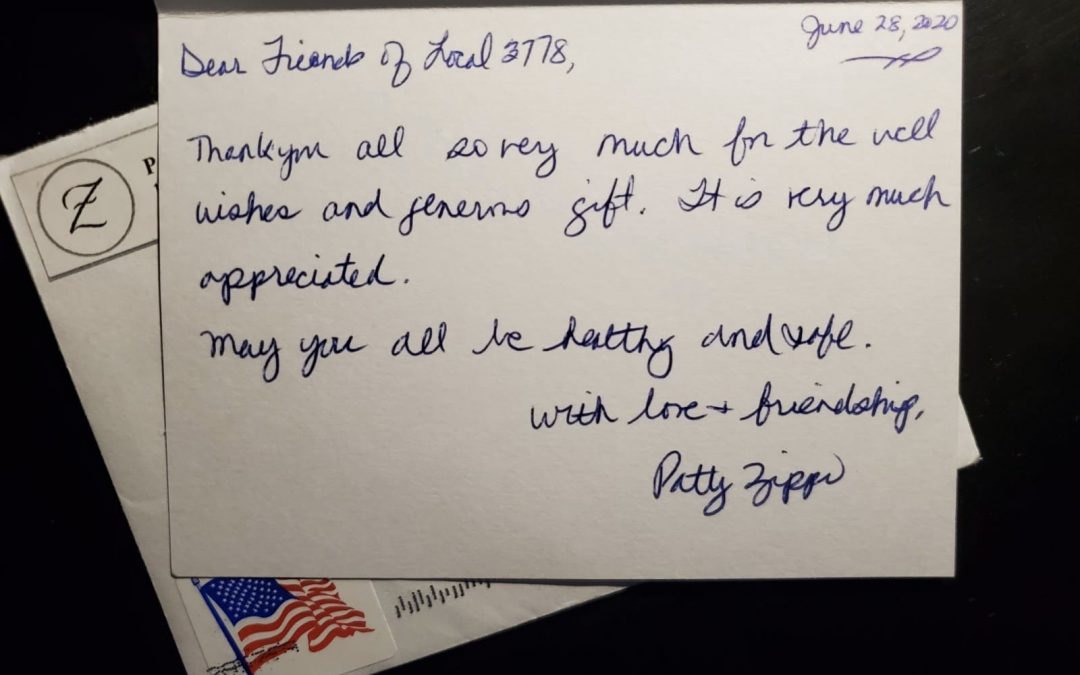 June 28, 2020
Dear Friends of Local 3778,
Thank you all so very much for the well
wishes and generous gift. It is very much
appreciated.
May you all be healthy and safe.
with love + friendship,
Patty Zippi
Z
P